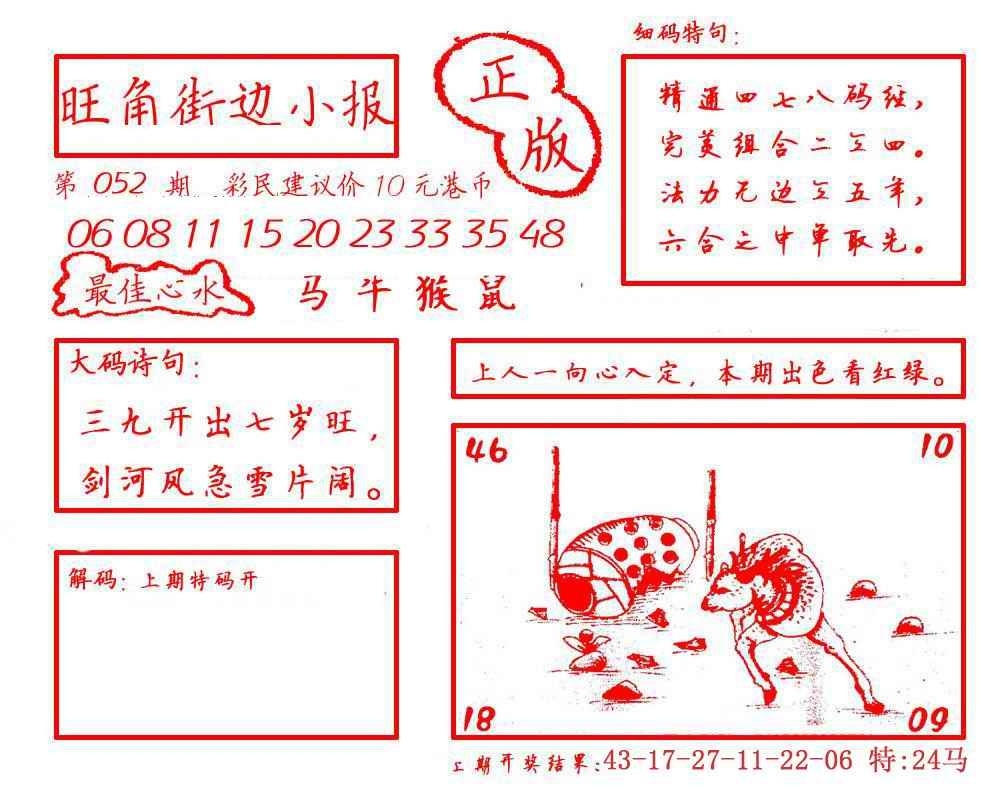 旺角街边小报
正版
第 052 期 彩民建议价 10 元港币
06 08 11 15 20 23 33 35 48
最佳心水 马 牛 猴 鼠
细码特句:
精通四七八码经,
完美组合二至四。
法力无边至五年,
六合之中单取先。
大码诗句:
三九开出七岁旺,
剑河风急雪片阔。
上人一向心入定, 本期出色看红绿。
解码: 上期特码开
46 10
18 09
上期开奖结果:43-17-27-11-22-06 特:24马